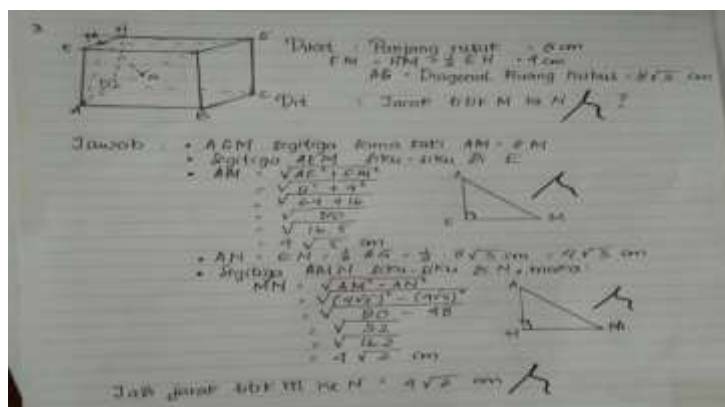 Diket : Panjang rusuk = 8 cm
EM = HM = ½ EH = 4 cm
AG = Diagonal Ruang kubus = 8√3 cm
Dit : Jarak titik M ke N ?
Jawab : • AGM segitiga sama kaki AM = GM
• Segitiga AEM siku-siku di E
• AM = √AE² + EM²
= √8² + 4²
= √64 + 16
= √80
= √16.5
= 4√5 cm
• AN = GN = ½ AG = ½ . 8√3 cm = 4√3 cm
• Segitiga AMN siku-siku di N, maka:
MN = √AM² - AN²
= √(4√5)² - (4√3)²
= √80 - 48
= √32
= √16.2
= 4√2 cm
Jadi jarak titik M ke N = 4√2 cm